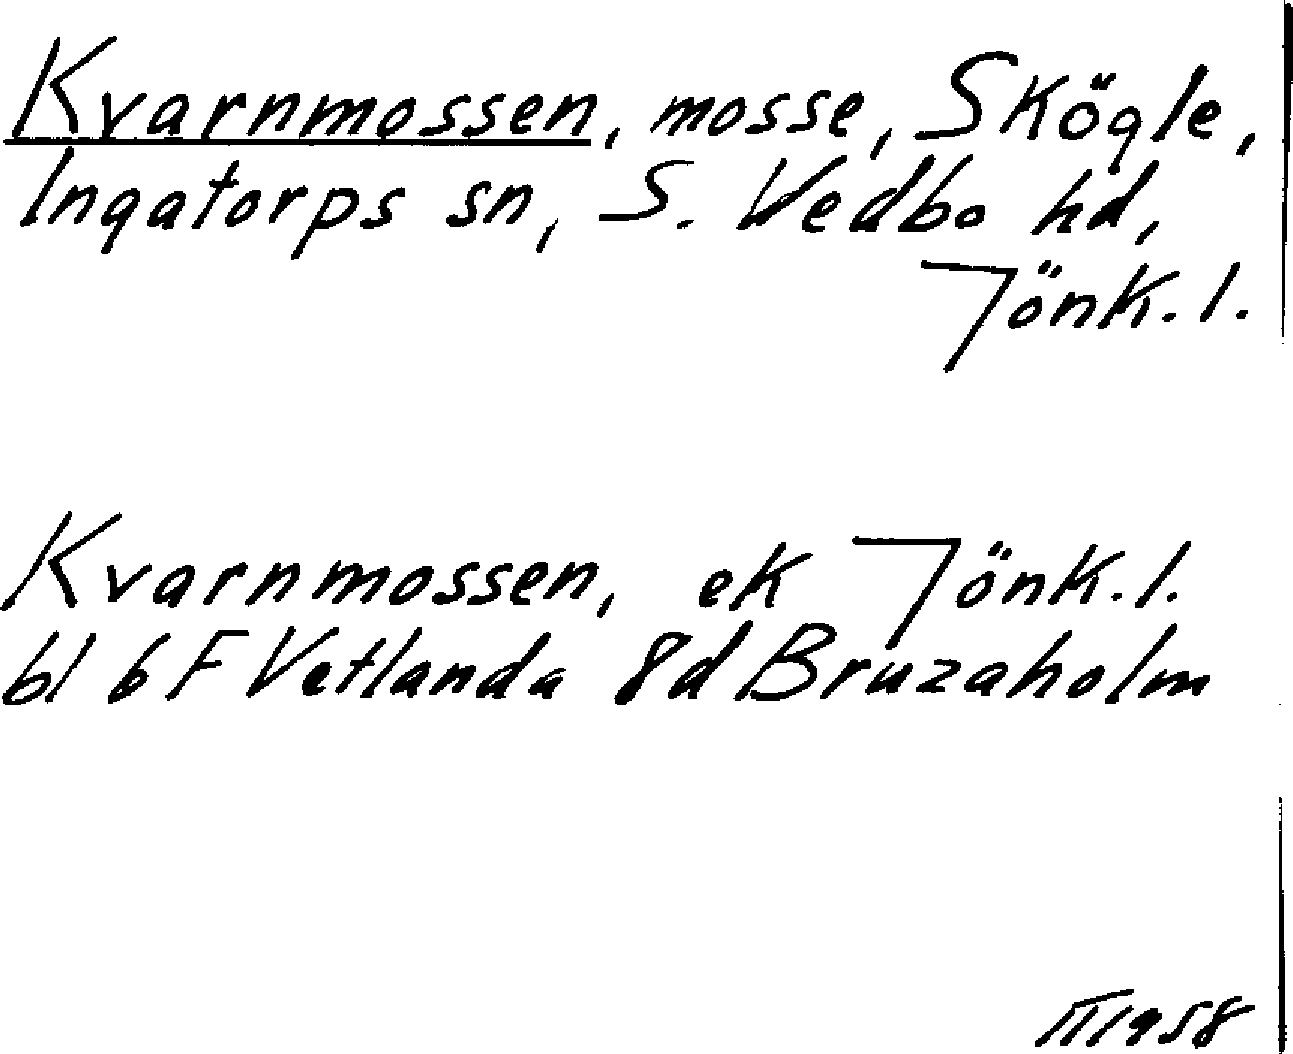 Kvarnmossen, mosse, Skögle,
Ingatorps sn, S. Vedbo hd,
Jönk. l.
Kvarnmossen, ek Jönk. l.
bl 6 F Vetlanda 8d Bruzaholm